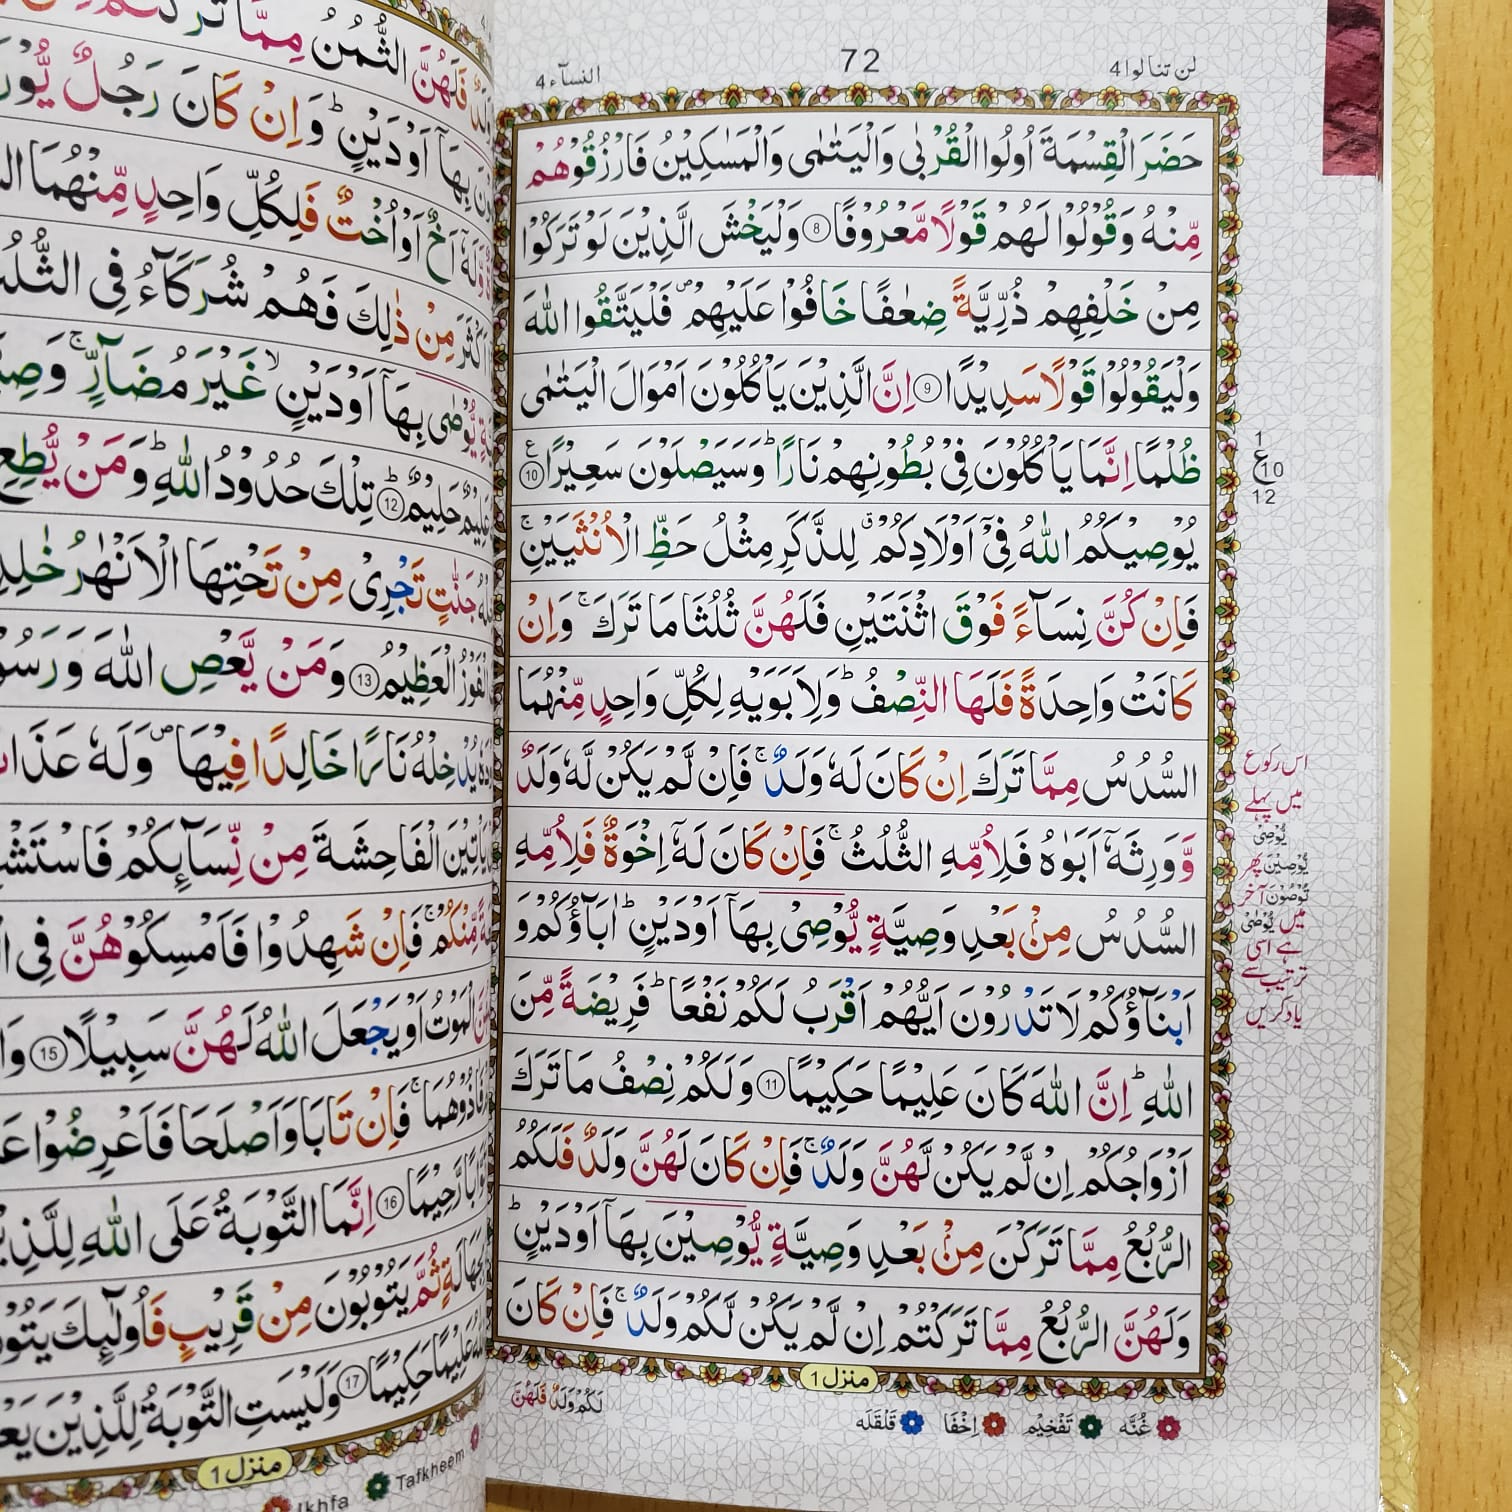 لن تنالوا4
72
النسآء4
حَضَرَ الْقِسْمَةَ اُولُوا الْقُرْبٰى وَالْيَتٰمٰى وَالْمَسٰكِيْنُ فَارْزُقُوْهُمْ
مِّنْهُ وَقُوْلُوْا لَهُمْ قَوْلًا مَّعْرُوْفًا ۝8 وَلْيَخْشَ الَّذِيْنَ لَوْ تَرَكُوْا
مِنْ خَلْفِهِمْ ذُرِّيَّةً ضِعٰفًا خَافُوْا عَلَيْهِمْ ۖ فَلْيَتَّقُوا اللّٰهَ
وَلْيَقُوْلُوْا قَوْلًا سَدِيْدًا ۝9 اِنَّ الَّذِيْنَ يَاْكُلُوْنَ اَمْوَالَ الْيَتٰمٰى
ظُلْمًا اِنَّمَا يَاْكُلُوْنَ فِيْ بُطُوْنِهِمْ نَارًا ؕ وَسَيَصْلَوْنَ سَعِيْرًا ۝10 ع
يُوْصِيْكُمُ اللّٰهُ فِيْٓ اَوْلَادِكُمْ ۗ لِلذَّكَرِ مِثْلُ حَظِّ الْاُنْثَيَيْنِ ۚ
فَاِنْ كُنَّ نِسَآءً فَوْقَ اثْنَتَيْنِ فَلَهُنَّ ثُلُثَا مَا تَرَكَ ۚ وَاِنْ
كَانَتْ وَاحِدَةً فَلَهَا النِّصْفُ ؕ وَلِاَبَوَيْهِ لِكُلِّ وَاحِدٍ مِّنْهُمَا
السُّدُسُ مِمَّا تَرَكَ اِنْ كَانَ لَهٗ وَلَدٌ ۚ فَاِنْ لَّمْ يَكُنْ لَّهٗ وَلَدٌ
وَّوَرِثَهٗٓ اَبَوٰهُ فَلِاُمِّهِ الثُّلُثُ ۚ فَاِنْ كَانَ لَهٗٓ اِخْوَةٌ فَلِاُمِّهِ
السُّدُسُ مِنْۢ بَعْدِ وَصِيَّةٍ يُّوْصِيْ بِهَآ اَوْ دَيْنٍ ؕ اٰبَآؤُكُمْ وَ
اَبْنَآؤُكُمْ لَا تَدْرُوْنَ اَيُّهُمْ اَقْرَبُ لَكُمْ نَفْعًا ؕ فَرِيْضَةً مِّنَ
اللّٰهِ ؕ اِنَّ اللّٰهَ كَانَ عَلِيْمًا حَكِيْمًا ۝11 وَلَكُمْ نِصْفُ مَا تَرَكَ
اَزْوَاجُكُمْ اِنْ لَّمْ يَكُنْ لَّهُنَّ وَلَدٌ ۚ فَاِنْ كَانَ لَهُنَّ وَلَدٌ فَلَكُمُ
الرُّبُعُ مِمَّا تَرَكْنَ مِنْۢ بَعْدِ وَصِيَّةٍ يُّوْصِيْنَ بِهَآ اَوْ دَيْنٍ ؕ
وَلَهُنَّ الرُّبُعُ مِمَّا تَرَكْتُمْ اِنْ لَّمْ يَكُنْ لَّكُمْ وَلَدٌ ۚ فَاِنْ كَانَ
منزل 1
لَكُمْ وَلَدٌ فَلَهُنَّ
غُنَّه تَفْخِيْم اِخْفَا قَلْقَلَه
1
ع 10
12
اس رکوع
میں پہلے
يُّوْصِيْ
يُّوْصِيْنَ پھر
تُوْصُوْنَ آخر
میں يُّوْصٰى
ہے اسی
ترتیب سے
یاد کریں
فَلَهُنَّ الثُّمُنُ مِمَّا تَرَكْتُمْ
بِهَآ اَوْ دَيْنٍ ؕ وَاِنْ كَانَ رَجُلٌ
وَّلَهٗٓ اَخٌ اَوْ اُخْتٌ فَلِكُلِّ وَاحِدٍ مِّنْهُمَا
مِنْ ذٰلِكَ فَهُمْ شُرَكَآءُ فِي الثُّلُثِ
يُّوْصٰى بِهَآ اَوْ دَيْنٍ ۙ غَيْرَ مُضَآرٍّ ۚ
عَلِيْمٌ حَلِيْمٌ ۝12 تِلْكَ حُدُوْدُ اللّٰهِ ؕ وَمَنْ يُّطِعِ
جَنّٰتٍ تَجْرِيْ مِنْ تَحْتِهَا الْاَنْهٰرُ
الْفَوْزُ الْعَظِيْمُ ۝13 وَمَنْ يَّعْصِ اللّٰهَ وَ
يُدْخِلْهُ نَارًا خَالِدًا فِيْهَا ۖ وَلَهٗ
يَاْتِيْنَ الْفَاحِشَةَ مِنْ نِّسَآىِٕكُمْ
مِّنْكُمْ ۚ فَاِنْ شَهِدُوْا فَاَمْسِكُوْهُنَّ فِي
الْمَوْتُ اَوْ يَجْعَلَ اللّٰهُ لَهُنَّ سَبِيْلًا ۝15
فَاٰذُوْهُمَا ۚ فَاِنْ تَابَا وَاَصْلَحَا فَاَعْرِضُوْا
تَوَّابًا رَّحِيْمًا ۝16 اِنَّمَا التَّوْبَةُ عَلَى اللّٰهِ لِلَّذِيْنَ
ثُمَّ يَتُوْبُوْنَ مِنْ قَرِيْبٍ فَاُولٰٓىِٕكَ
عَلِيْمًا حَكِيْمًا ۝17 وَلَيْسَتِ التَّوْبَةُ لِلَّذِيْنَ
منزل 1
Ikhfa Tafkheem